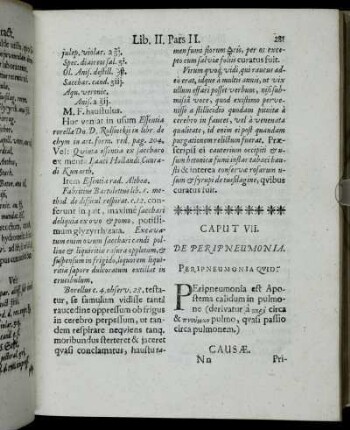 Lib. II. Pars II.
281
julep. violar. ℥iij.
Spec. diaireos sal. ℨj.
Ol. Anis. destill.
Sacchar. cand. ℥iij.
Aqu. vermic.
Anis. a ℥ij.
M. F. haustulus.
Huc veniat in usum Essentia
Da. D. Rolfincki in libr. de
chym. in art. form. red. pag. 204.
Vel: Quinta essentia ex saccharo
ex mente Isaaci Hollandi, Conra-
di Kunrath.
Item Essentia rad. Althææ.
Fabritius Bartoletus lib. c. me-
thod. de difficul. respirat. c. 12. con-
ferunt in
deliquia ex ovo & pomo, potissi-
mum glyzyrrhizæ. Excava-
tum enim ovum saccharo candi pol-
line & liquiritia rasura oppletum, &
suspensum in frigido, liquorem liquiri-
tia sapore dulcoratum extillat in
crucibulum.
Borellus c. 4. observ. 28. testa-
tur, se famulum vidisse tanta
raucedine oppressum ob frigus
in cerebro perpessum, ut tan-
dem respirare nequiens tanq.
moribundus sterteret & jaceret
quasi conclamatus, haustu ta-
men fumi florum per os exce-
pto cum salviæ foliis curatus fuit.
Virum quoq, vidi, qui raucus ad-
eo erat, idque à multis annis, ut vix
ullum effari posset verbum, nisi sub-
missa voce, quod existimo perve-
nisse à stillicidio quodam pituitæ à
cerebro in fauces, vel à venenata
qualitate, id enim ei post quandam
purgationem relictum fuerat. Præ-
scripsit ei cauterium occipiti & u-
sum betonicæ fumi instar tabaci hau-
sti & interea conservæ rosarum u-
sum & syrupi de tussilagine, quibus
curatus fuit.
CAPUT VII.
DE PERIPNEUMONIA.
PERIPNEUMONIA QUID?
PEripneumonia est Apo-
stema calidum in pulmo-
ne (derivatur à περὶ circa
& πνεύμων pulmo, quasi passio
circa pulmonem.)
CAUSÆ.
Nn
Pri-